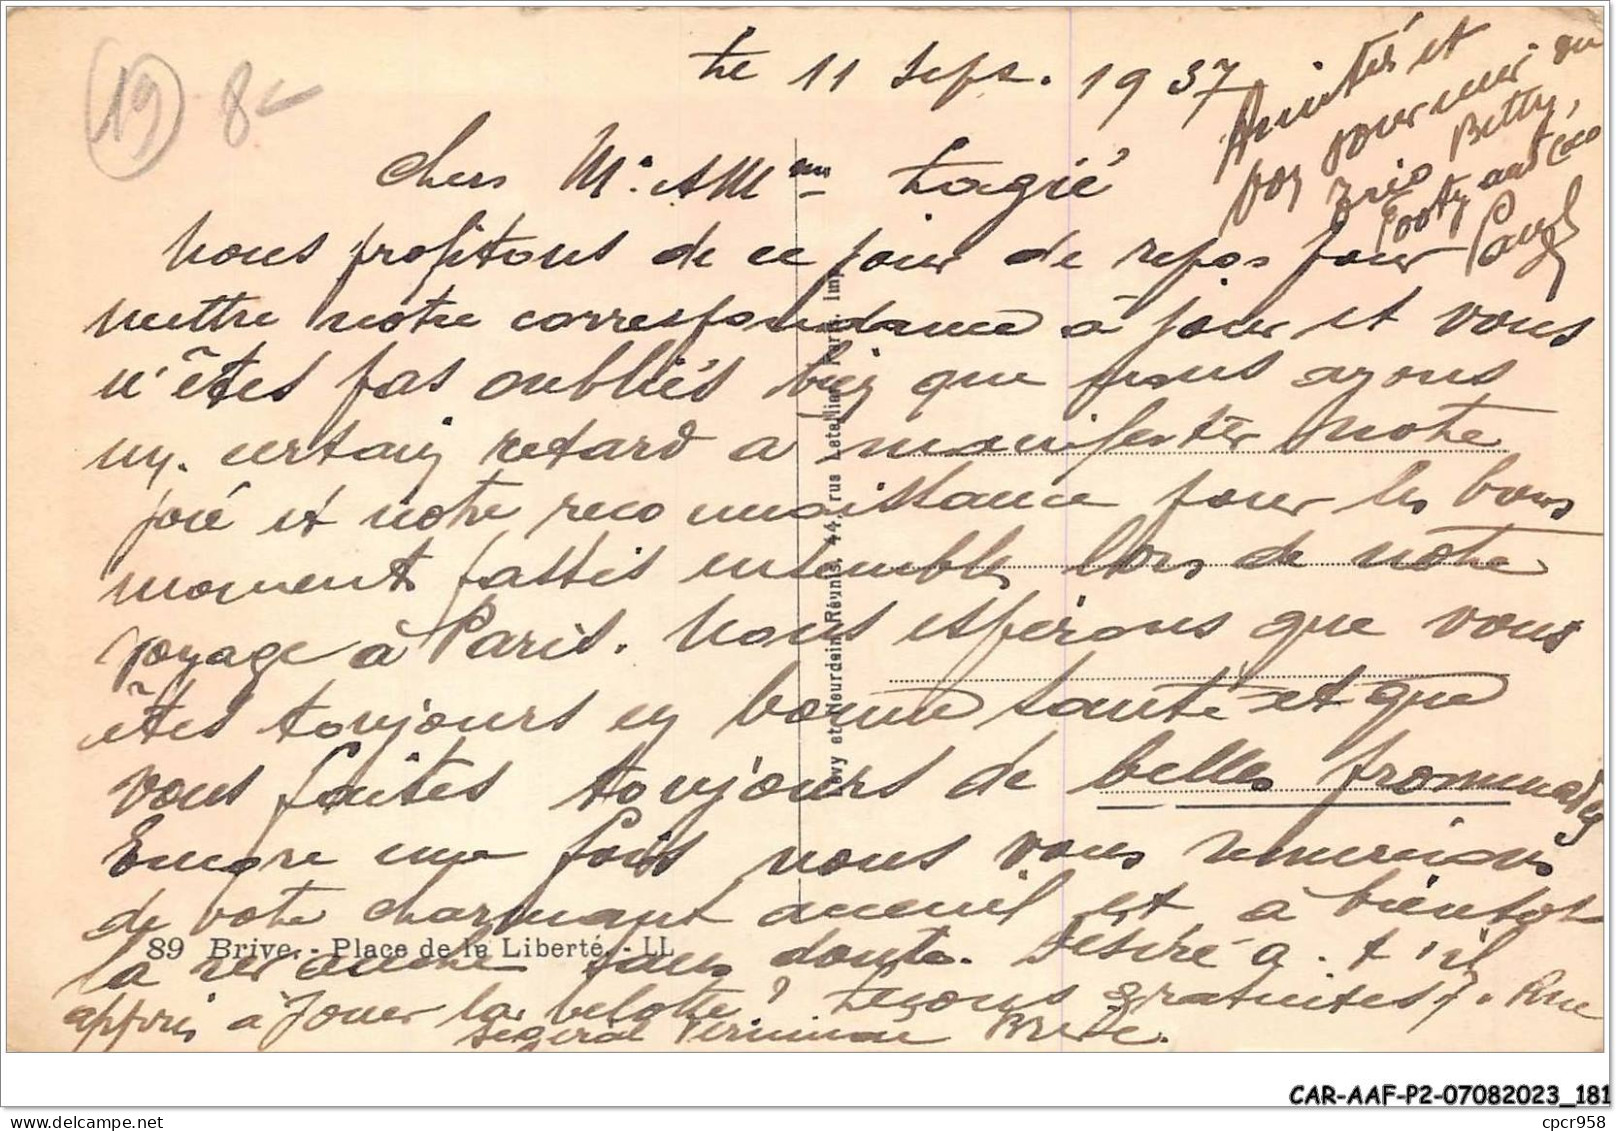 19 8
Le 11 Sept. 1937
Chers Mr. et Mme Lagié
Nous profitons de ce jour de repos pour
mettre notre correspondance à jour et vous
n'êtes pas oubliés bien que nous ayons
un certain retard a manifester notre
joie et notre reconnaissance pour les bons
moments passés ensembles lors de notre
voyage à Paris. Nous espérons que vous
êtes toujours en bonne santé et que
vous faites toujours de belles promenades
Encore une fois nous vous remercions
de votre charmant accueil et à bientôt
la revanche sans doute. Désiré a-t'il
appris à jouer la belotte? Leçons gratuites 7. Rue
Ségéral Verminac Brive.
Amitiés et
bon souvenir au
trio Betty,
Tooty and Coco
89 Brive. - Place de la Liberté. - LL
Lévy et Neurdein Réunis, 44, rue Letellier, Paris. Imp.
CAR-AAF-P2-07082023_181
cpcr958